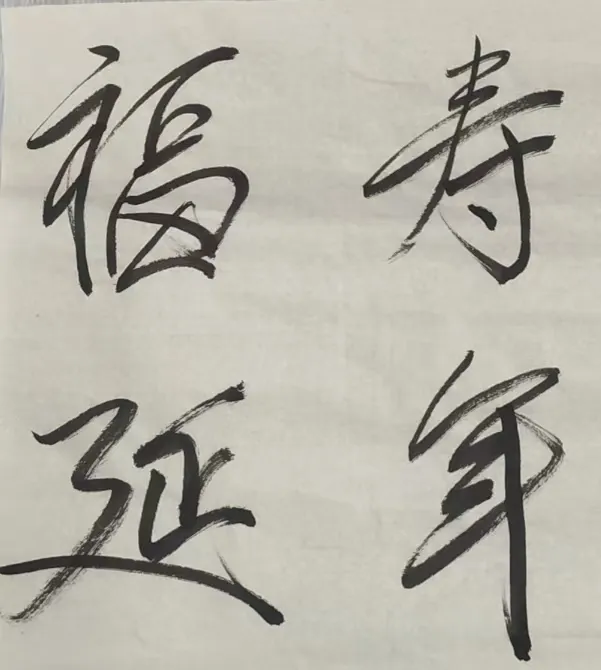 福寿
延年